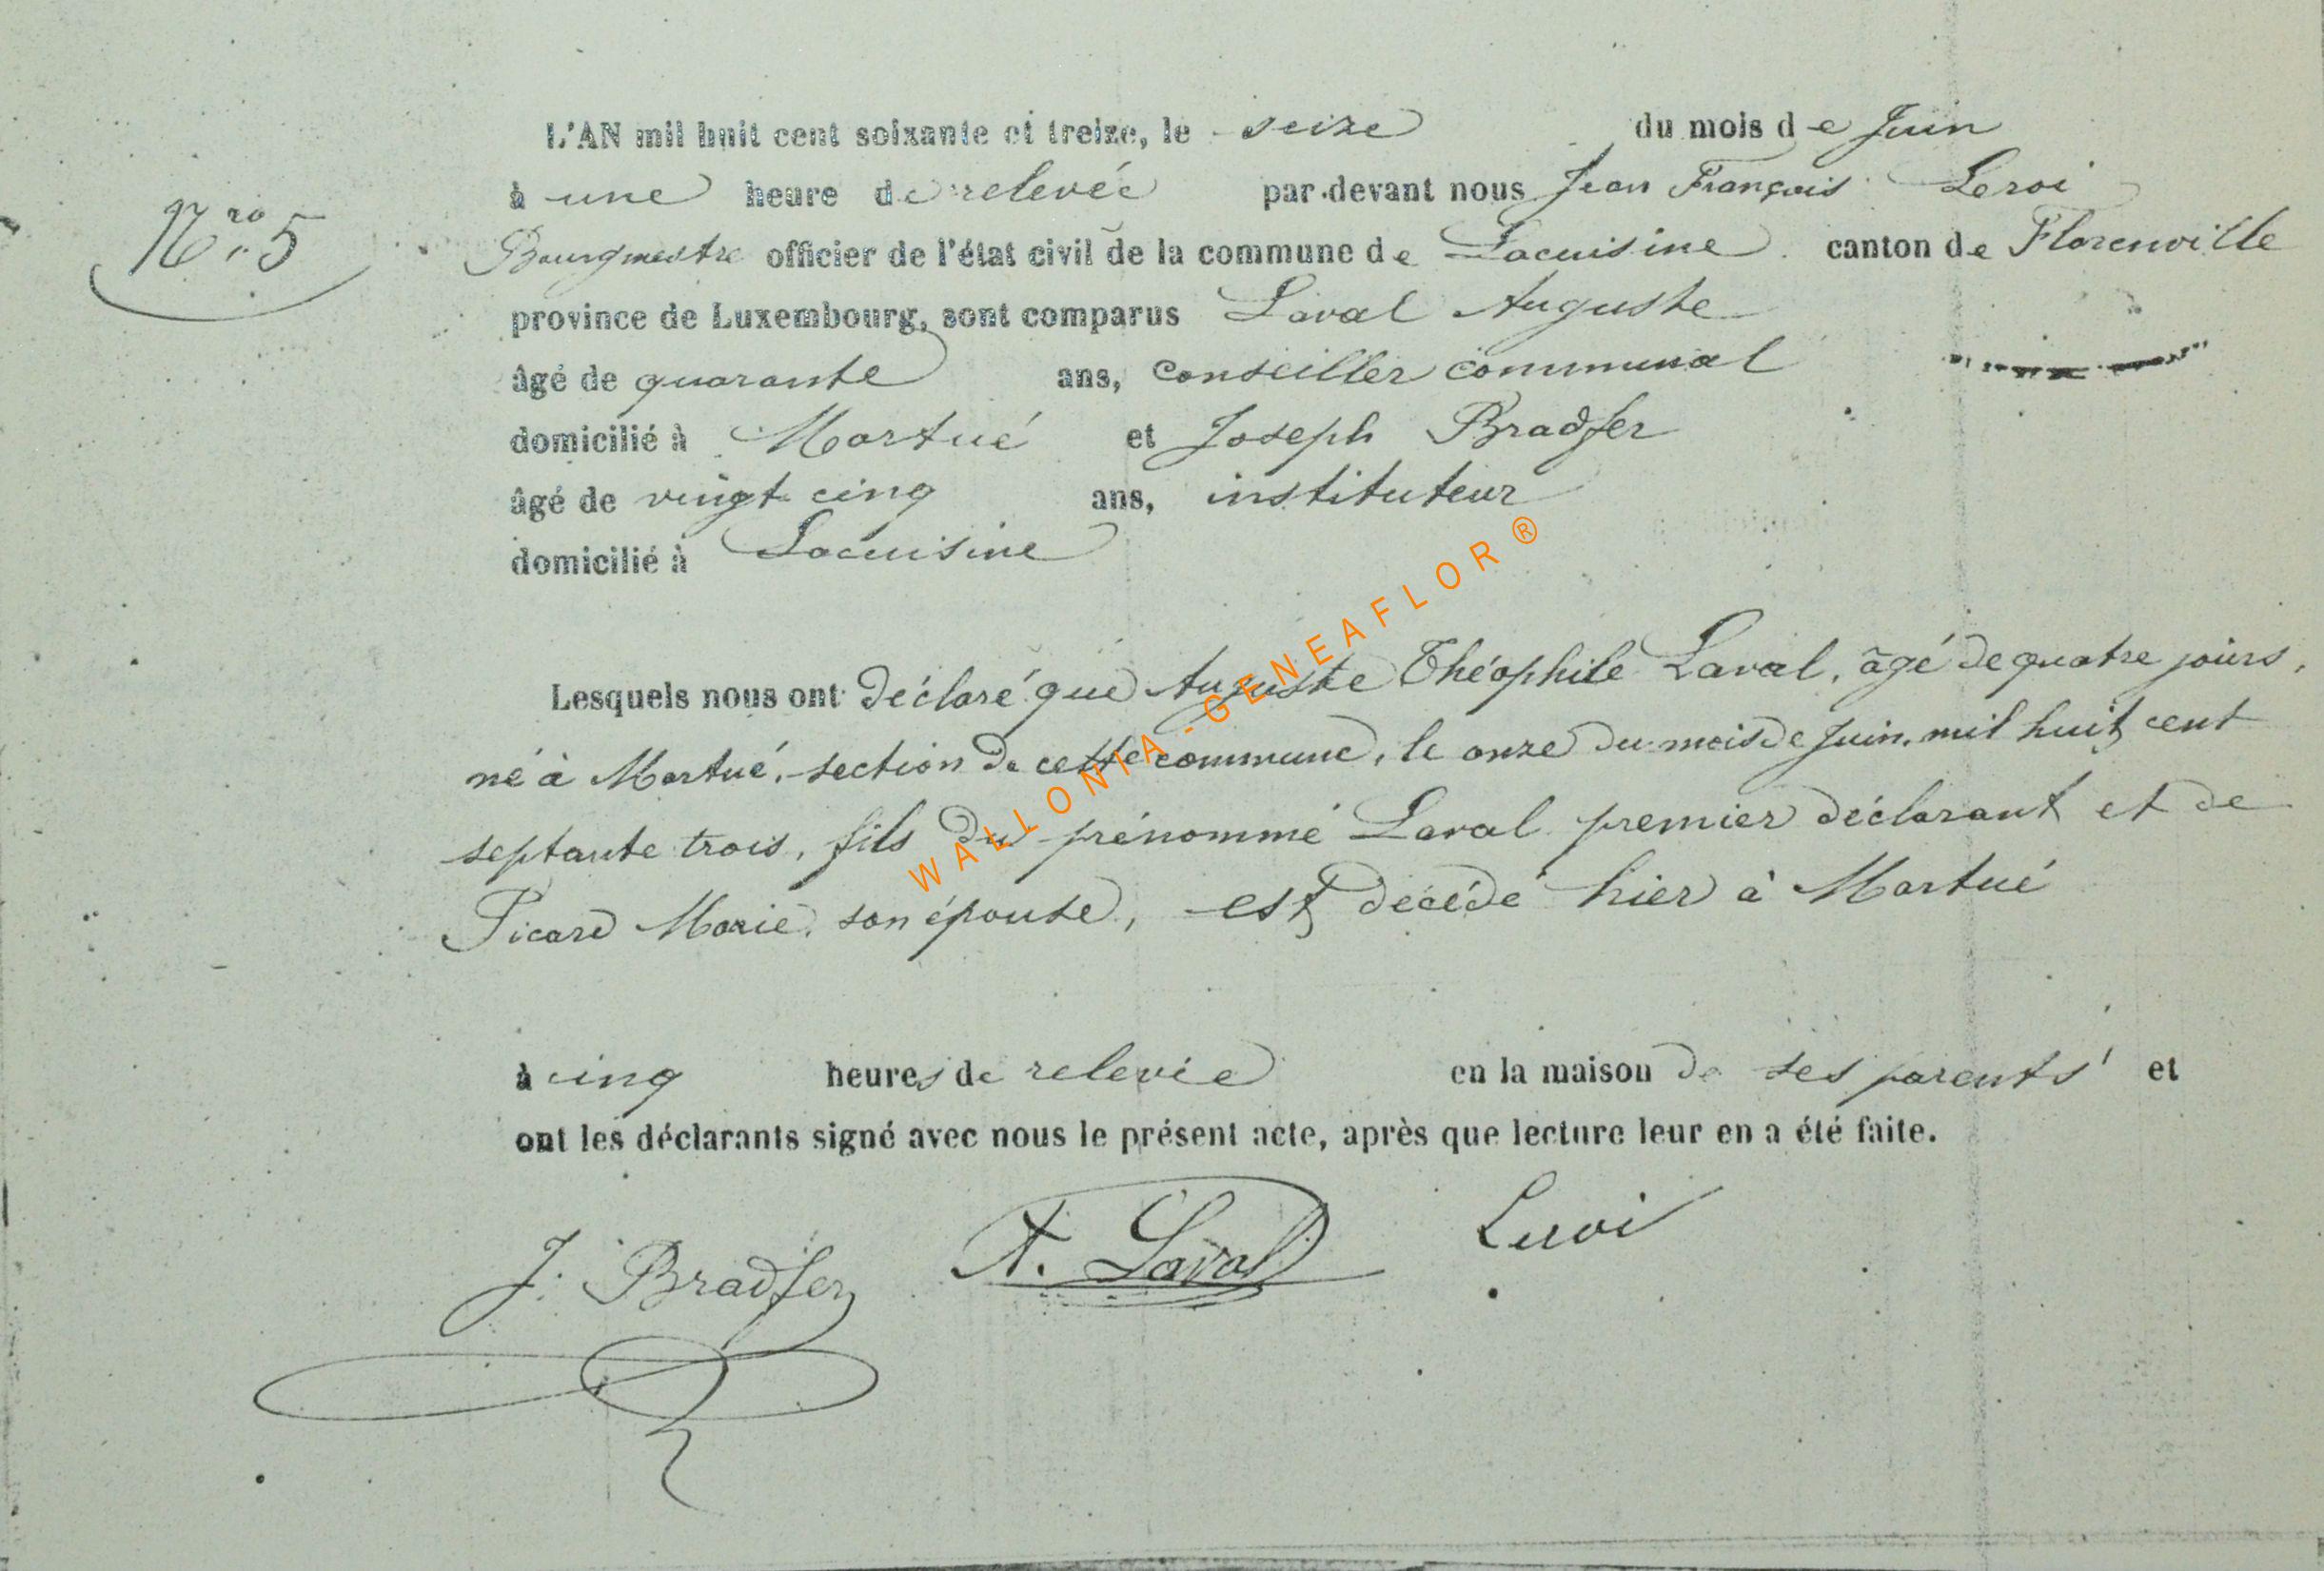 L'AN mil huit cent soixante et treize, le seize du mois de Juin
à une heure de relevée par devant nous Jean François Leroi
Nro. 5
Bourgmestre officier de l'état civil de la commune de Lacuisine canton de Florenville
province de Luxembourg, sont comparus Laval Auguste
âgé de quarante ans, conseiller communal
domicilié à Martué et Joseph Bradfer
âgé de vingt cinq ans, instituteur
domicilié à Lacuisine
Lesquels nous ont déclaré que Auguste Théophile Laval, âgé de quatre jours,
né à Martué, section de cette commune, le onze du mois de Juin, mil huit cent
septante trois, fils du prénommé Laval premier déclarant et de
Picard Marie, son épouse, est décédé hier à Martué
à cinq heures de relevée en la maison de ses parents et
ont les déclarants signé avec nous le présent acte, après que lecture leur en a été faite.
J. Bradfer A. Laval Leroi
WALLONIA-GENEAFLOR®